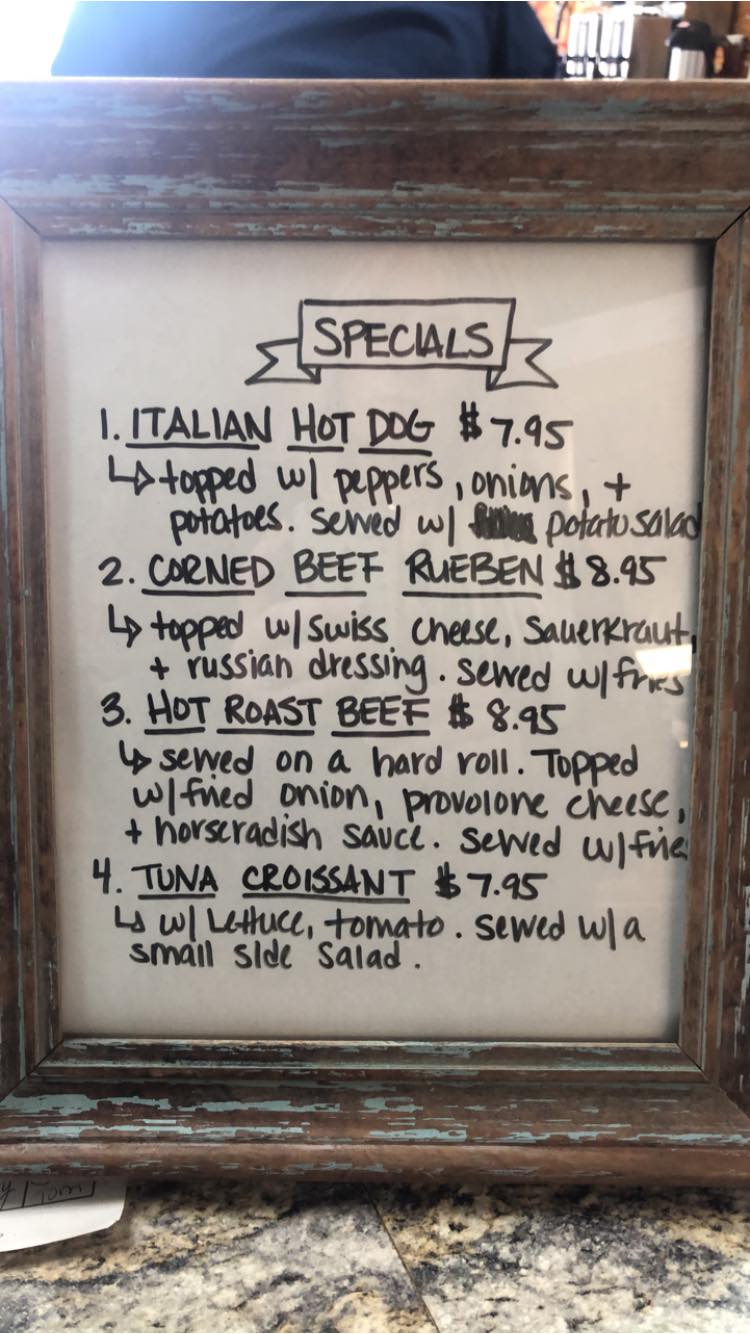 SPECIALS
1. ITALIAN HOT DOG $7.95
↳ topped w/ peppers, onions, +
potatoes. served w/ potato salad
2. CORNED BEEF RUEBEN $8.95
↳ topped w/ swiss cheese, sauerkraut,
+ russian dressing. served w/ fries
3. HOT ROAST BEEF $8.95
↳ served on a hard roll. Topped
w/ fried onion, provolone cheese,
+ horseradish sauce. served w/ fries
4. TUNA CROISSANT $7.95
↳ w/ Lettuce, tomato. served w/ a
small side salad.